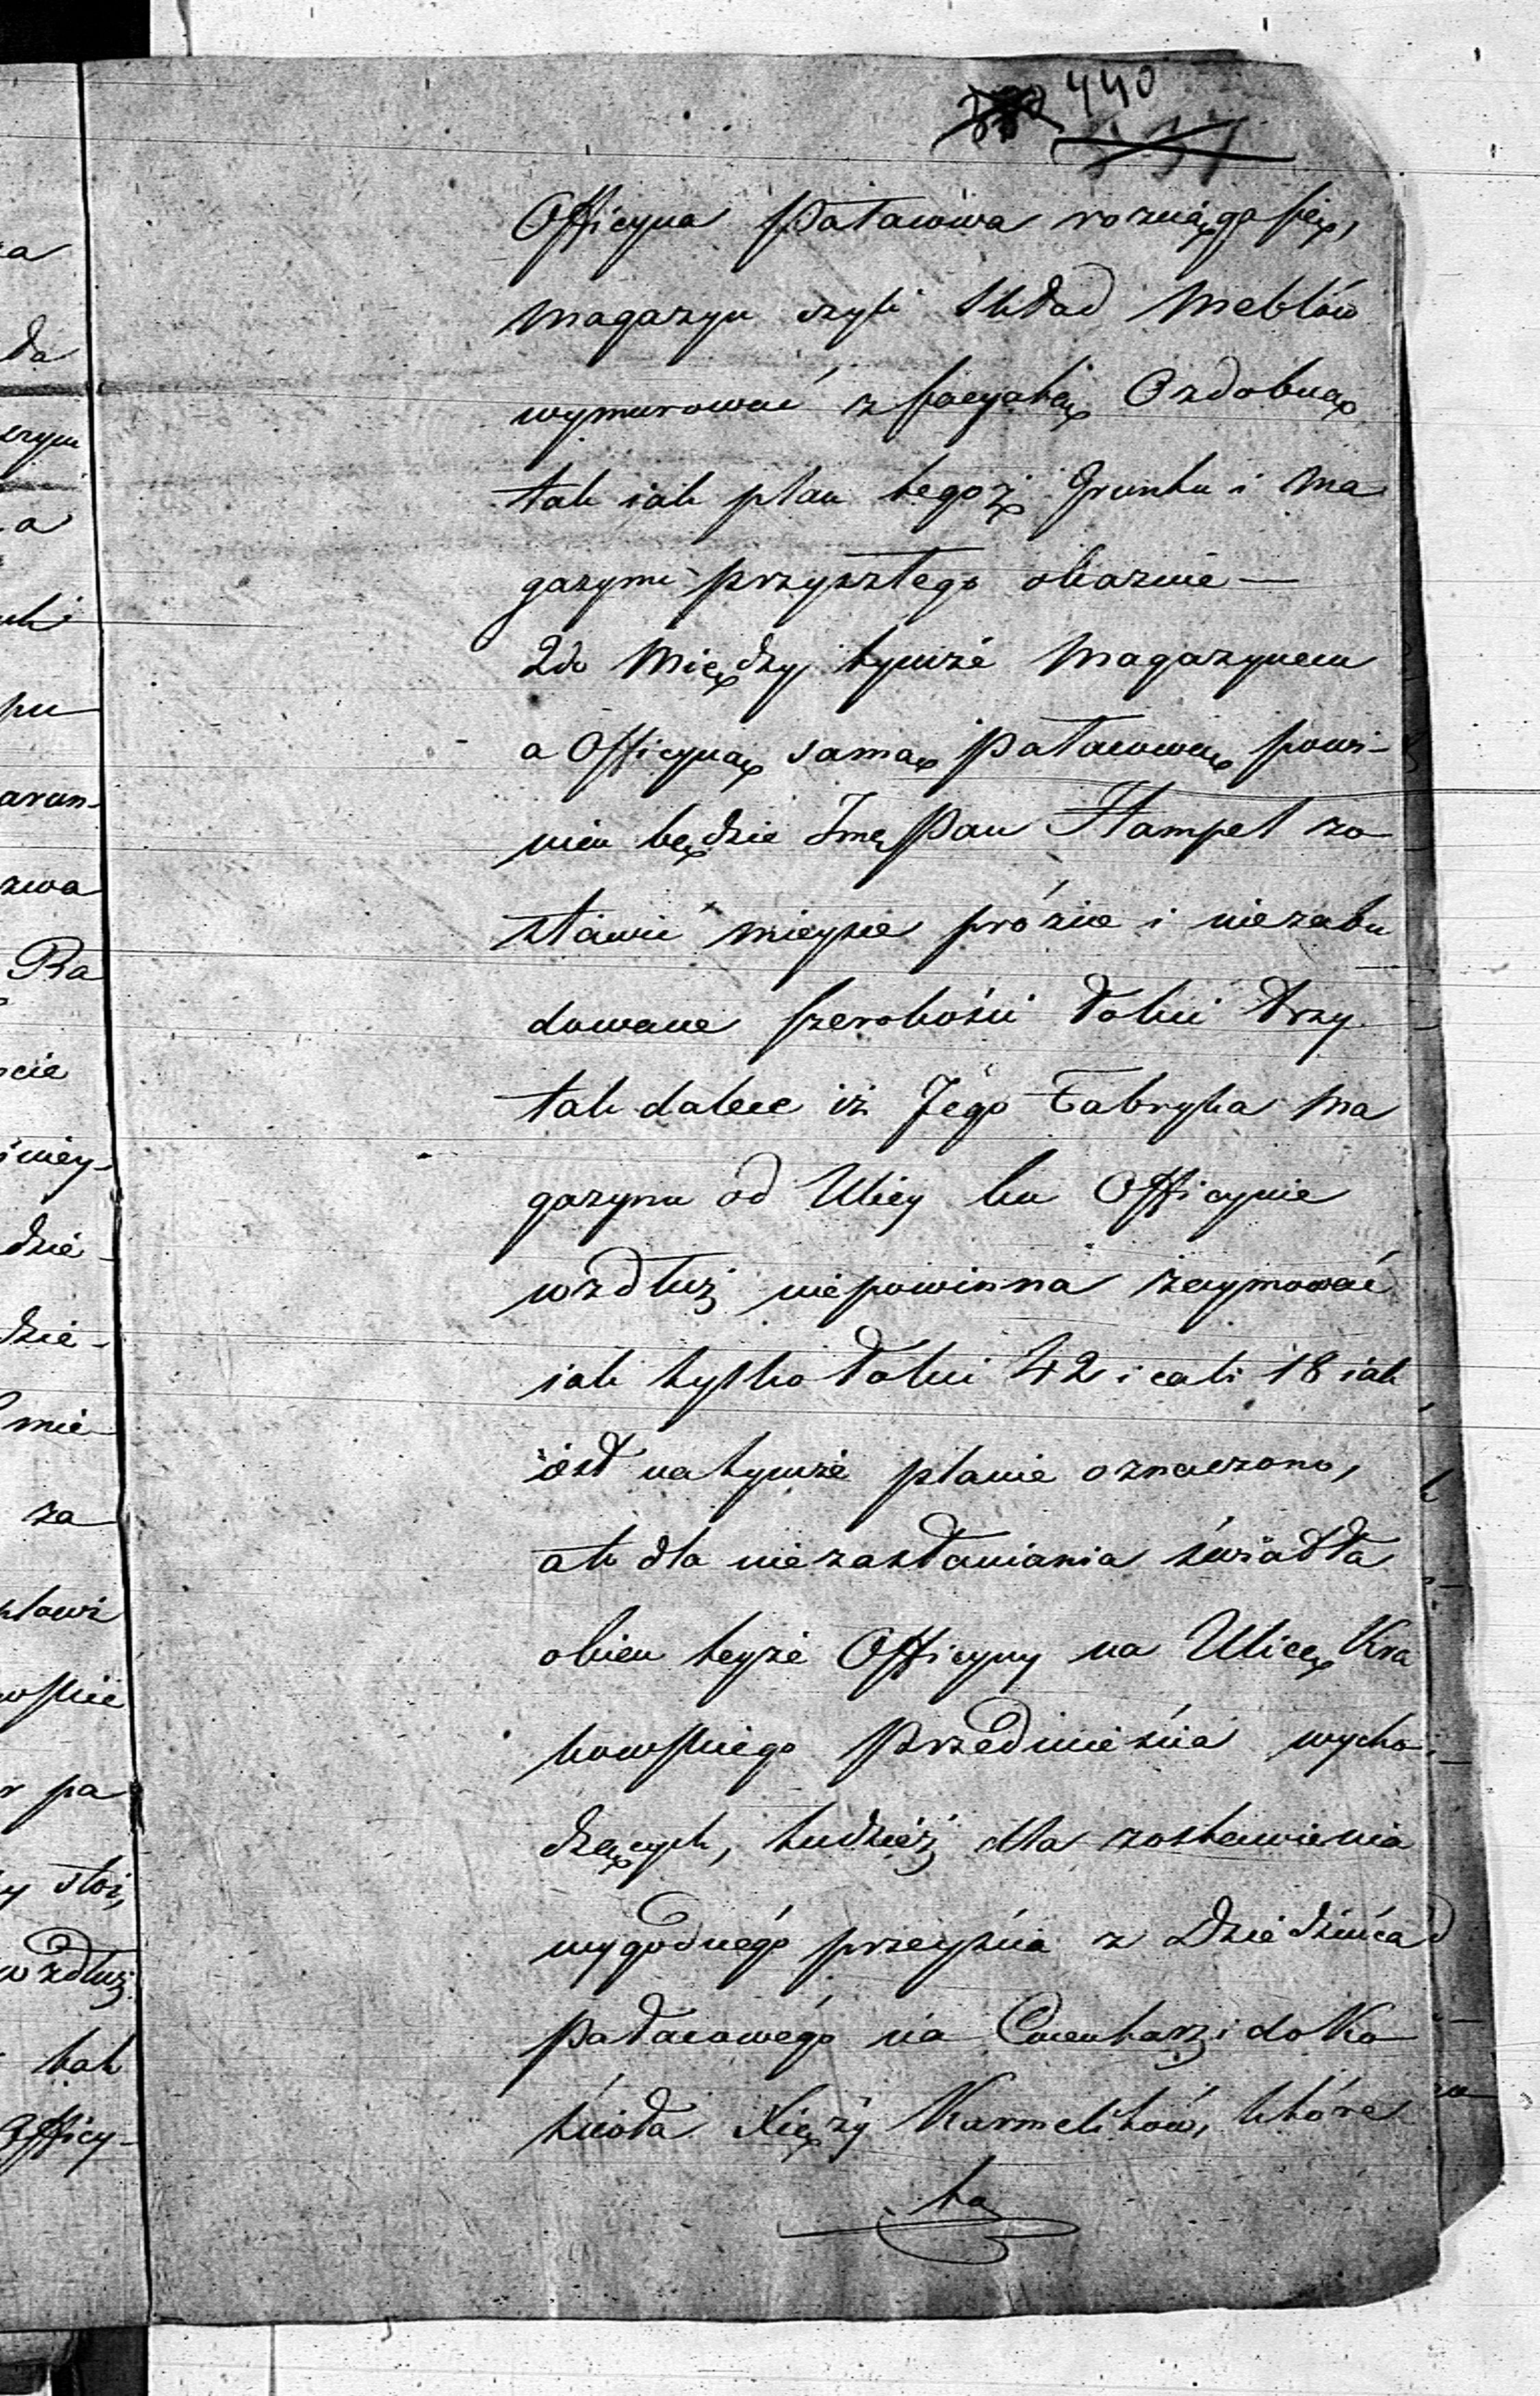 440
337
Officyna Pałacowa rozciąga się,
Magazyn czyli Skład Meblów
wymurować z facyatą Ozdobną
tak iak plan tegoż Gruntu i Ma
gazynu przyszłego okazuie —
2do Między tymże Magazynem
a Officyną samą Pałacową powi-
nien będzie Jmć Pan Hampel zo
stawić mieysce próżne i nie zabu
dowane szerokości łokci trzy
tak dalece iż Jego Fabryka Ma
gazynu od Ulicy ku Officynie
wzdłuż nie powinna zaymować
iak tylko łokci 42 i cali 18 iak
iest na tymże planie oznaczono,
a to dla nie zasłaniania światła
okien teyże Officyny na Ulicę Kra
kowskiego Przedmieścia wycho
dzących, tudzież dla zostawienia
wygodnego przeyścia z Dziedzińca
Pałacowego na Cmentarz i do Ko
ścioła Xięży Karmelitów, które
ta
a
da
szym
a
pu
arun-
zwa
Ra
ście
miey-
dzie-
dzie-
mie
za
stawi
wskie
pa
y stoi,
wzdłuż
tak
Officy-